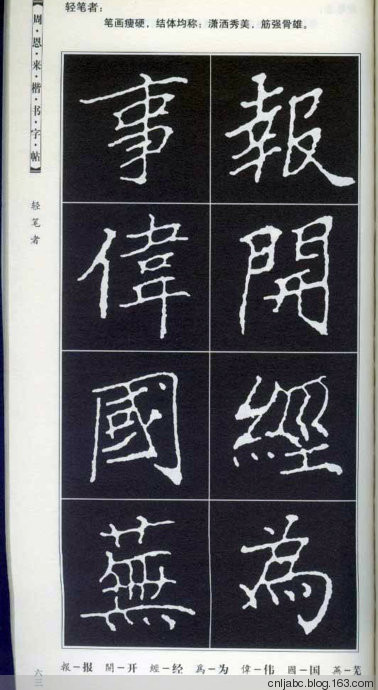 轻笔者：
笔画瘦硬，结体均称；潇洒秀美，筋强骨雄。
【周·恩·来·楷·书·字·帖】
轻笔者
報開經為
事偉國蕪
報－报 開－开 經－经 為－为 偉－伟 國－国 蕪－芜
六三
cnljabc.blog.163.com